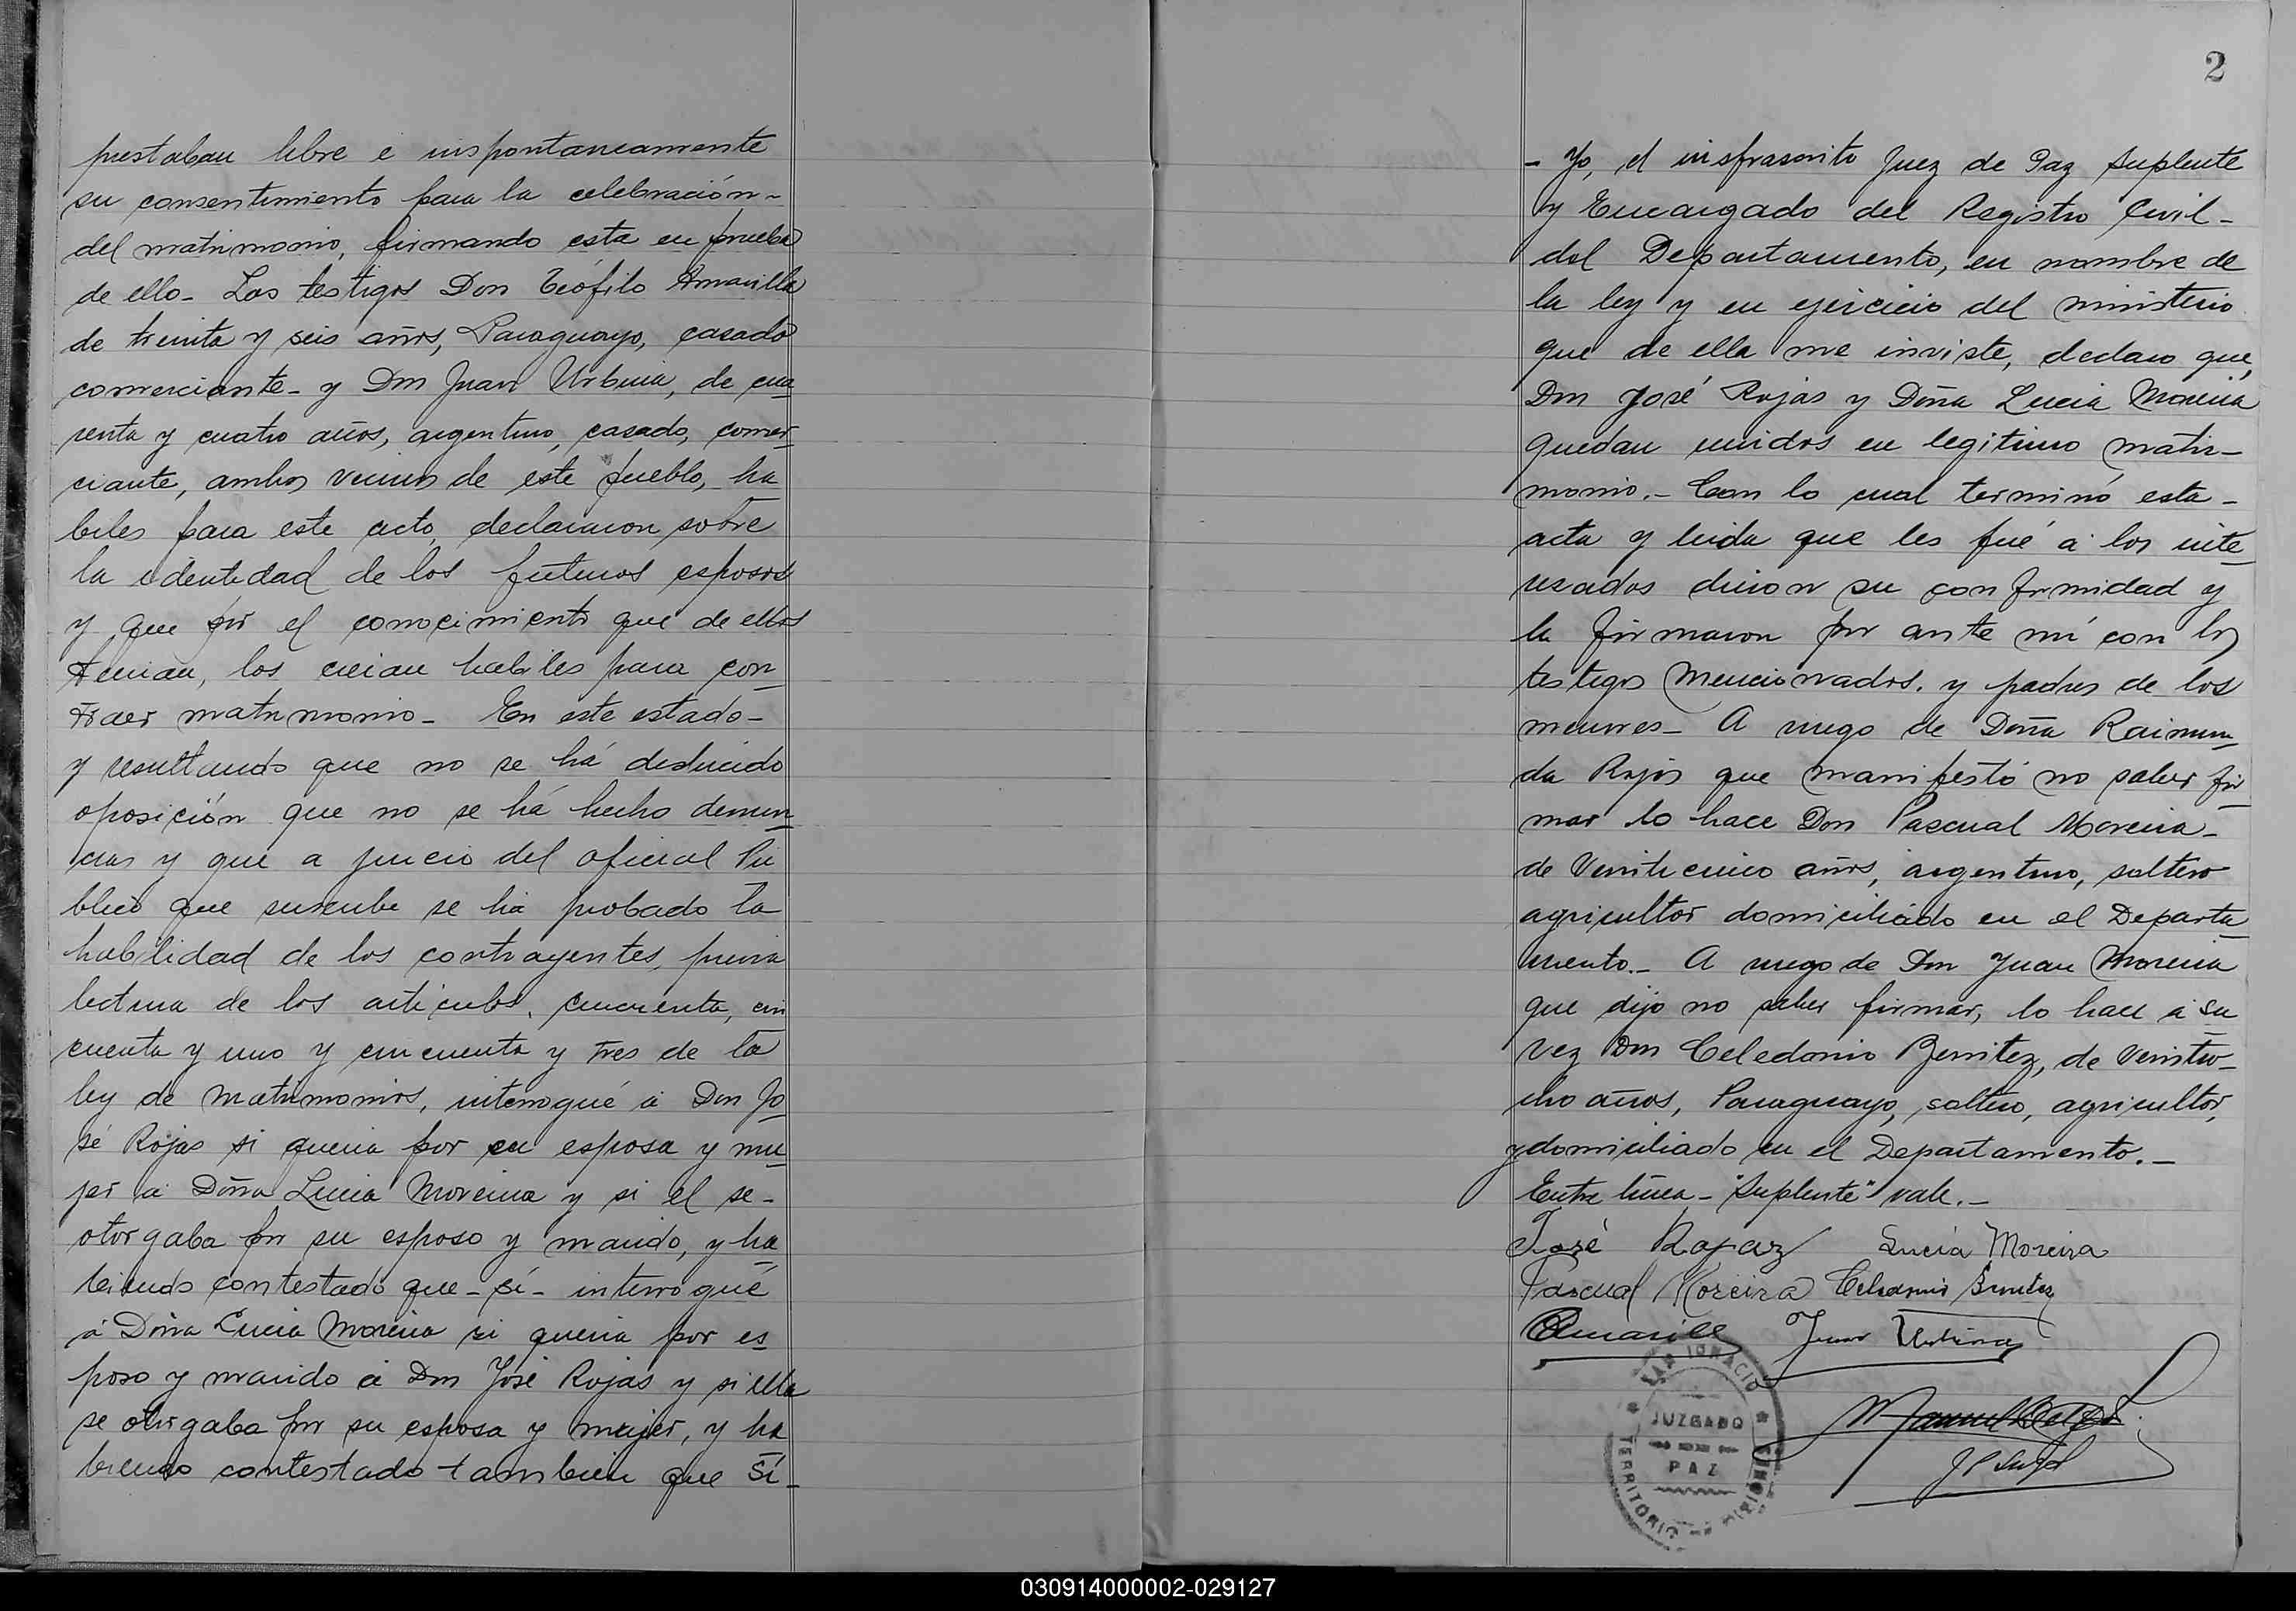 prestaban libre e inspontaneamente
su consentimiento para la celebración-
del matrimonio, firmando esta en prueba
de ello- Los testigos Don Teófilo Amarilla
de treinta y seis años, Paraguayo, casado
comerciante- y Don Juan Urbina, de cua
renta y cuatro años, argentino, casado, comer
ciante, ambos vecinos de este pueblo, ha
biles para este acto, declararon sobre
la identidad de los futuros esposos
y que por el conocimiento que de ellos
tenian, los creian habiles para con
traer matrimonio- En este estado-
y resultando que no se há deducido
oposición que no se há hecho denun
cias y que a juicio del oficial Pu
blico que suscribe se ha probado la
habilidad de los contrayentes, previa
lectura de los articulos, cincuenta, cin
cuenta y uno y cincuenta y tres de la
ley de matrimonios, interrogué á Don Jo
sé Rojas si queria por su esposa y mu
jer á Doña Lucia Moreira y si el se-
otorgaba por su esposo y marido, y ha
biendo contestado que-sí- interrogué
á Doña Lucia Moreira si queria por es
poso y marido á Don José Rojas y si ella
se otorgaba por su esposa y mujer, y ha
biendo contestado tambien que sí-
2
- Yo, el insfrascrito Juez de Paz Suplente
y Encargado del Registro Civil-
del Departamento, en nombre de
la ley y en ejercicio del ministerio
que de ella me inviste, declaro que,
Don José Rojas y Doña Lucia Moreira
quedan unidos en legitimo matri-
monio.- Con lo cual terminó esta-
acta y leida que les fué á los inte
resados dieron su conformidad y
la firmaron por ante mí con los
testigos mencionados. y padres de los
menores- A ruego de Doña Raimun
da Rojas que manifestó no saber fir
mar lo hace Don Pascual Moreira-
de Veinticinco años, argentino, soltero
agricultor domiciliado en el Departa
mento.- A ruego de Don Juan Moreira
que dijo no saber firmar, lo hace á su
vez Don Celedonio Benitez, de Veintio-
cho años, Paraguayo, soltero, agricultor,
y domiciliado en el Departamento.-
Entre linea- "Suplente" vale.-
José Rojaz Lucía Moreira
Pascual Moreira Celedonio Benitez
Amarilla Juan Urbina
SAN IGNACIO
JUZGADO
PAZ
TERRITORIO MISIONES
Manuel
J P Supl
030914000002-029127